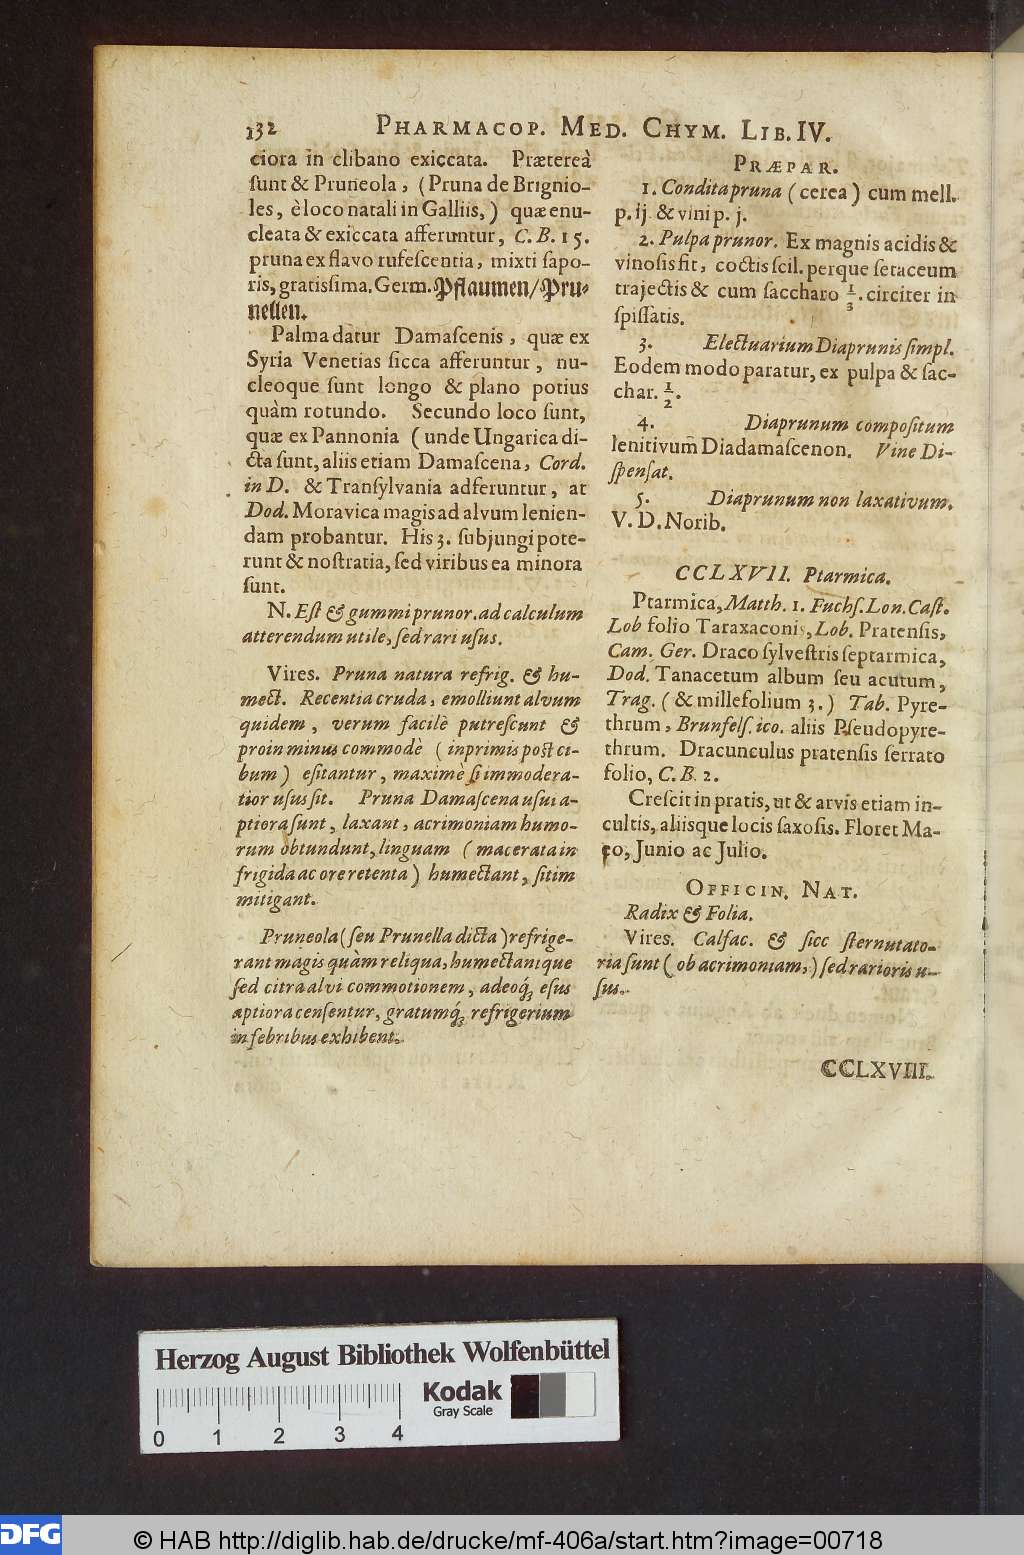 132 PHARMACOP. MED. CHYM. LIB. IV.
ciora in clibano exiccata. Prætereà
ſunt & Pruneola, (Pruna de Brignio-
les, è loco natali in Galliis,) quæ enu-
cleata & exiccata afferuntur, C. B. 15.
pruna ex flavo rufeſcentia, mixti ſapo-
ris, gratiſſima. Germ. Pflaumen/Pru-
nellen.
Palma datur Damaſcenis, quæ ex
Syria Venetias ſicca afferuntur, nu-
cleoque ſunt longo & plano potius
quàm rotundo. Secundo loco ſunt,
quæ ex Pannonia (unde Ungarica di-
cta ſunt, aliis etiam Damaſcena, Cord.
in D. & Tranſylvania adferuntur, at
Dod. Moravica magis ad alvum lenien-
dam probantur. His 3. ſubjungi pote-
runt & noſtratia, ſed viribus ea minora
ſunt.
N. Eſt & gummi prunor. ad calculum
atterendum utile, ſed rari uſus.
Vires. Pruna natura refrig. & hu-
mect. Recentia cruda, emolliunt alvum
quidem, verum facilè putreſcunt &
proin minus commodè (inprimis poſt ci-
bum) eſitantur, maximè ſi immodera-
tior uſus ſit. Pruna Damaſcena uſui a-
ptiora ſunt, laxant, acrimoniam humo-
rum obtundunt, linguam (macerata in
frigida ac ore retenta) humectant, ſitim
mitigant.
Pruneola (ſeu Prunella dicta) refrige-
rant magis quàm reliqua, humectantque
ſed citra alvi commotionem, adeoq́; eſus
aptiora cenſentur, gratumq́; refrigerium
in febribus exhibent.
PRÆPAR.
1. Condita pruna (cerea) cum mell.
p. ij & vini p. j.
2. Pulpa prunor. Ex magnis acidis &
vinoſis fit, coctis ſcil. perque ſetaceum
trajectis & cum ſaccharo 1/3. circiter in
ſpiſſatis.
3. Electuarium Diaprunis ſimpl.
Eodem modo paratur, ex pulpa & ſac-
char. 1/2.
4. Diaprunum compoſitum
lenitivum̄ Diadamaſcenon. Vine Di-
ſpenſat.
5. Diaprunum non laxativum.
V. D. Norib.
CCLXVII. Ptarmica.
Ptarmica, Matth. 1. Fuchſ. Lon. Caſt.
Lob folio Taraxaconis, Lob. Pratenſis,
Cam. Ger. Draco ſylveſtris ſeptarmica,
Dod. Tanacetum album ſeu acutum,
Trag. (& millefolium 3.) Tab. Pyre-
thrum, Brunfelſ. ico. aliis Pſeudopyre-
thrum. Dracunculus pratenſis ſerrato
folio, C. B. 2.
Creſcit in pratis, ut & arvis etiam in-
cultis, aliisque locis ſaxoſis. Floret Ma-
jo, Junio ac Julio.
OFFICIN. NAT.
Radix & Folia.
Vires. Calfac. & ſicc ſternutato-
ria ſunt (ob acrimoniam,) ſed rarioris u-
ſus.
CCLXVIII.
Herzog August Bibliothek Wolfenbüttel
Kodak
Gray Scale
0 1 2 3 4
DFG
© HAB http://diglib.hab.de/drucke/mf-406a/start.htm?image=00718